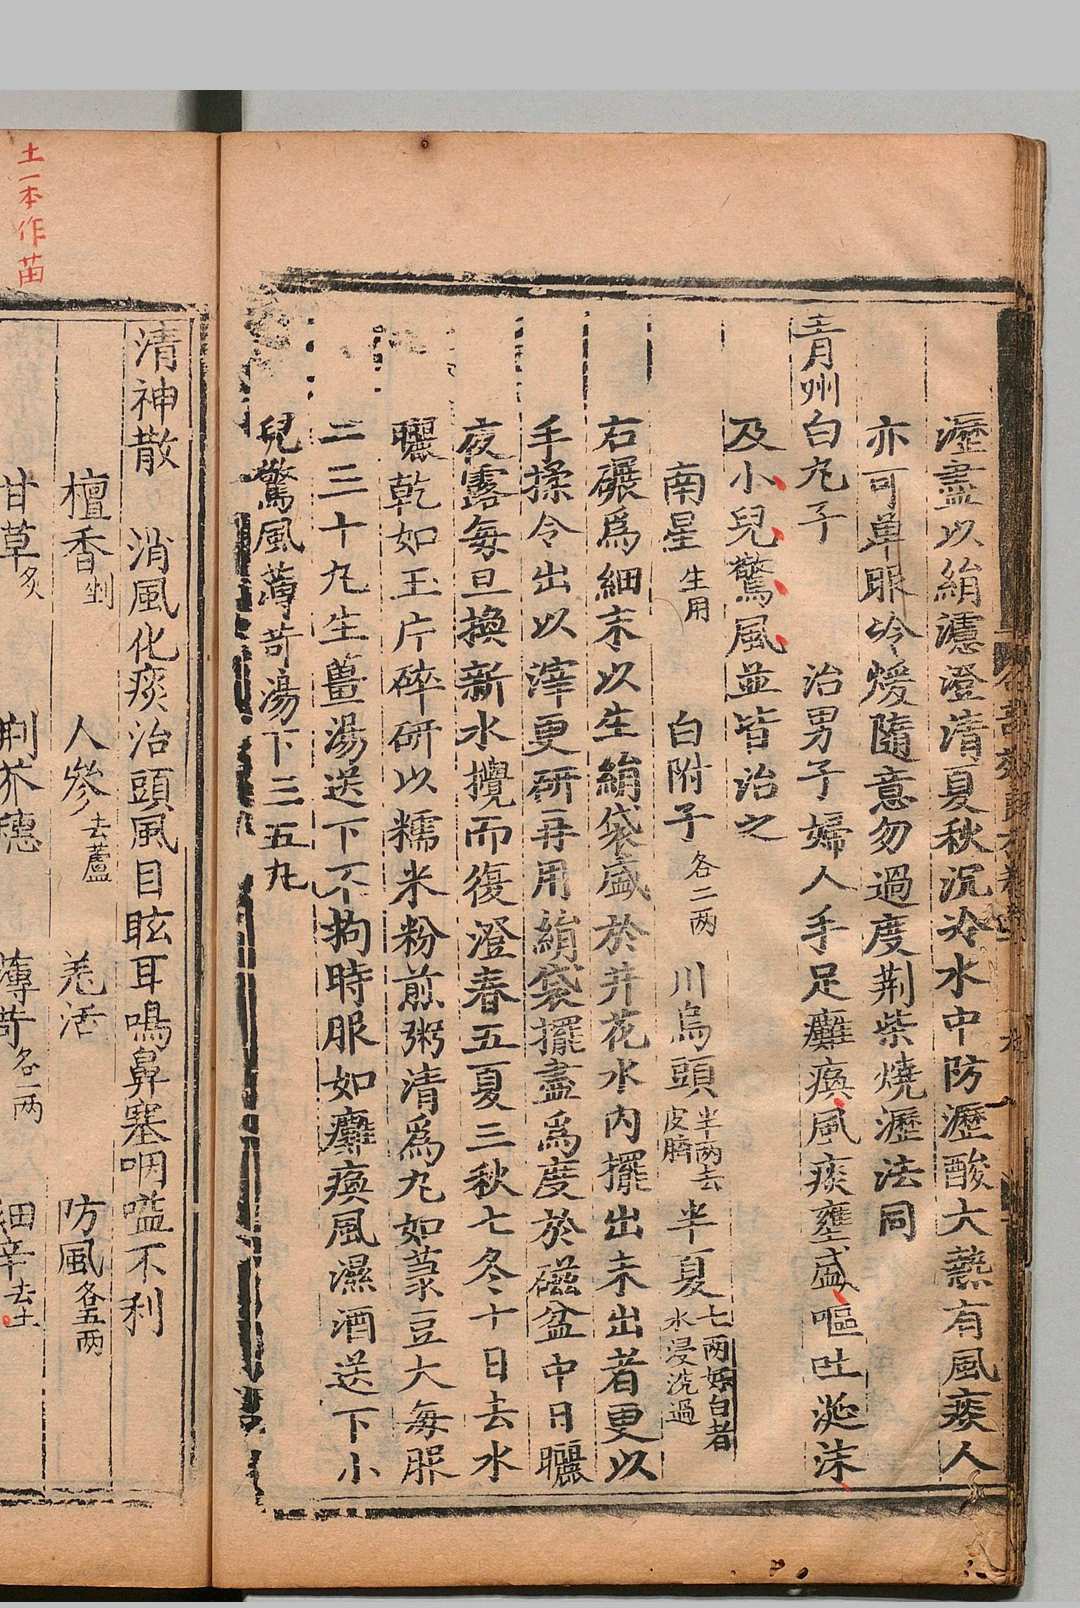 瀝盡以絹濾澄清夏秋沉冷水中防瀝酸大熱有風痰人
亦可單服冷煖隨意勿過度荆柴燒瀝法同
青州白丸子　治男子婦人手足癱瘓風痰壅盛嘔吐涎沫
及小兒驚風並皆治之
南星生用　白附子各二兩　川烏頭半兩去皮臍　半夏七兩好白者水浸洗過
右碾爲細末以生絹袋盛於井花水内擺出未出者更以
手揉令出以滓更研再用絹袋擺盡爲度於磁盆中日曬
夜露每旦換新水攪而復澄春五夏三秋七冬十日去水
曬乾如玉片碎研以糯米粉煎粥清爲丸如菉豆大每服
二三十丸生薑湯送下不拘時服如癱瘓風濕酒送下小
兒驚風薄苛湯下三五丸
土一本作苗
清神散　消風化痰治頭風目眩耳鳴鼻塞咽嗌不利
檀香剉　人參去蘆　羌活　防風各五兩
甘草炙　荆芥穗　薄苛各一兩　細辛去土